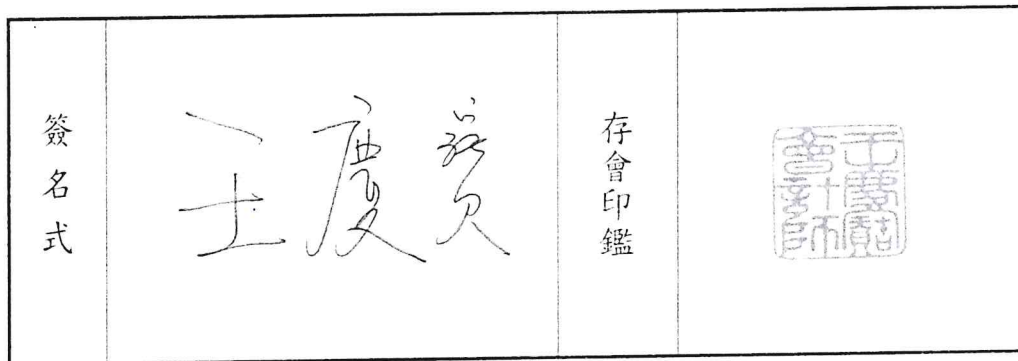 簽名式
王慶寶
存會印鑑
王慶寶
會計師